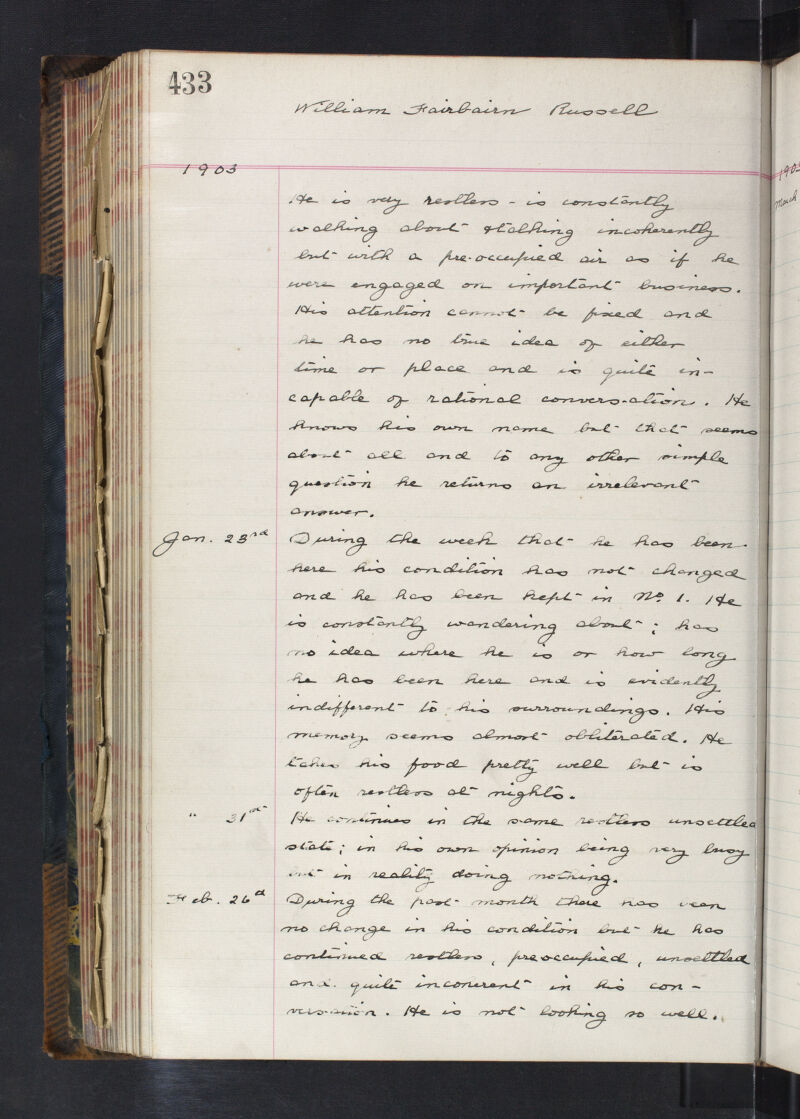 433
William Fairbairn Russell
1903
He is very restless - is constantly
walking about & talking incoherently
but with a pre-occupied air as if he
were engaged on important business.
His attention cannot be fixed and
he has no true idea of either
time or place and is quite in-
capable of rational conversation. He
knows his own name but that seems
about all and to any other simple
question he returns an irrelevant
answer.
Jan. 23rd During the week that he has been
here his condition has not changed
and he has been kept in No. 1. He
is constantly wandering about; has
no idea where he is or how long
he has been here and is evidently
indifferent to his surroundings. His
memory seems almost obliterated. He
takes his food pretty well but is
often restless at nights.
" 31st He continues in the same restless unsettled
state; in his own opinion being very busy
but in reality doing nothing.
Feb. 26th During the past month there has been
no change in his condition but he has
continued restless, preoccupied, unsettled
and quite incoherent in his con-
versation. He is not looking so well.
1903
March